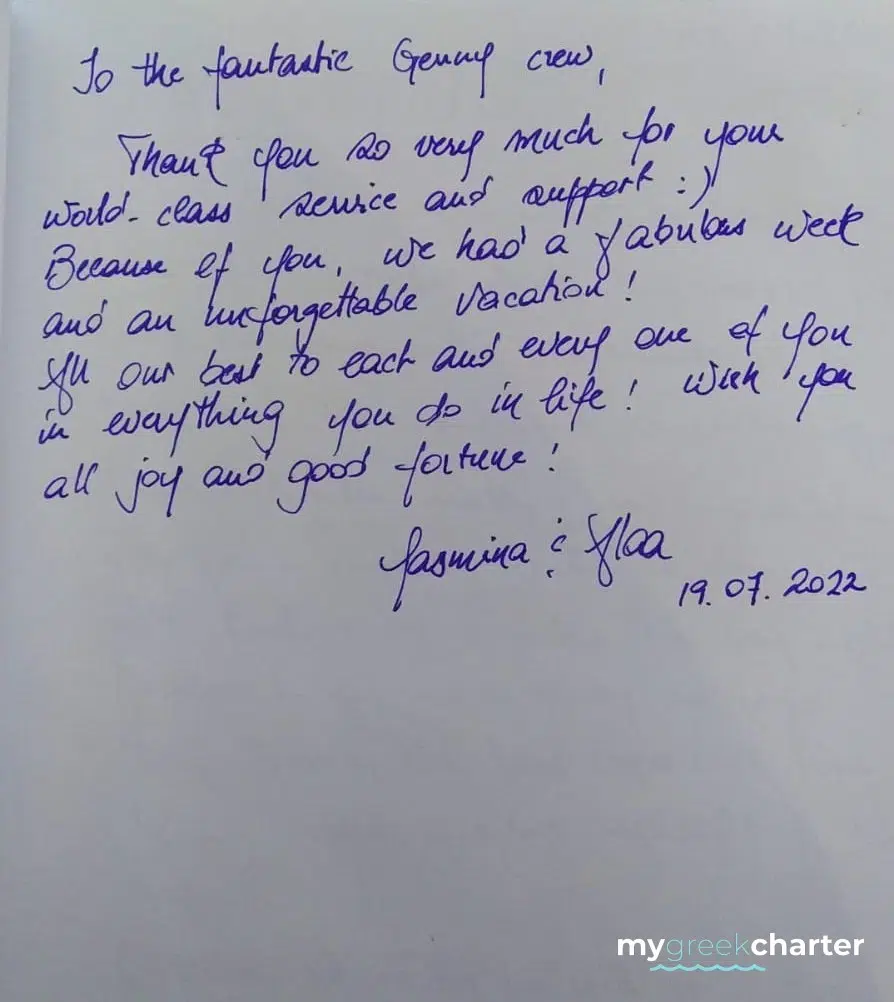 To the fantastic Genny crew,
Thank you so very much for your
world-class service and support :)
Because of you, we had a fabulous week
and an unforgettable vacation!
All our best to each and every one of you
in everything you do in life! Wish you
all joy and good fortune!
Jasmina & Alaa
19.07.2022
mygreekcharter